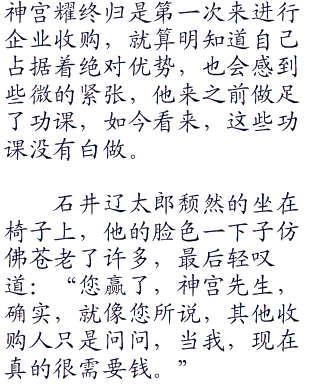 神宫耀终归是第一次来进行
企业收购，就算明知道自己
占据着绝对优势，也会感到
些微的紧张，他来之前做足
了功课，如今看来，这些功
课没有白做。
石井辽太郎颓然的坐在
椅子上，他的脸色一下子仿
佛苍老了许多，最后轻叹
道：“您赢了，神宫先生，
确实，就像您所说，其他收
购人只是问问，当我，现在
真的很需要钱。”